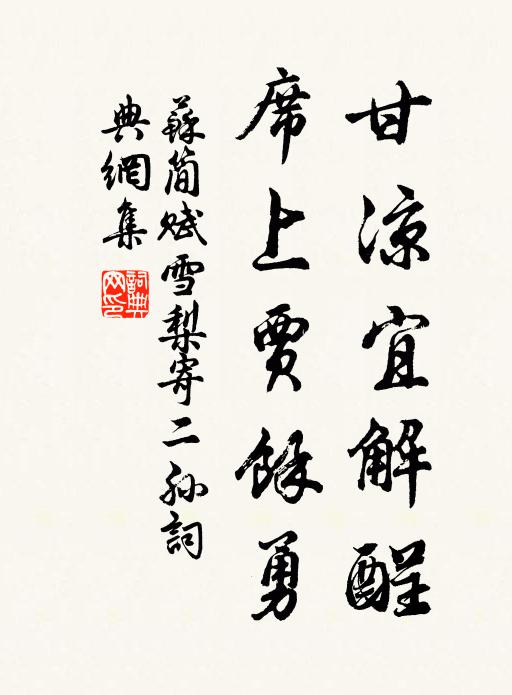 甘涼宜解酲
席上賈餘勇
蘇簡賦雪梨寄二孙詞
典網集
詞典網印